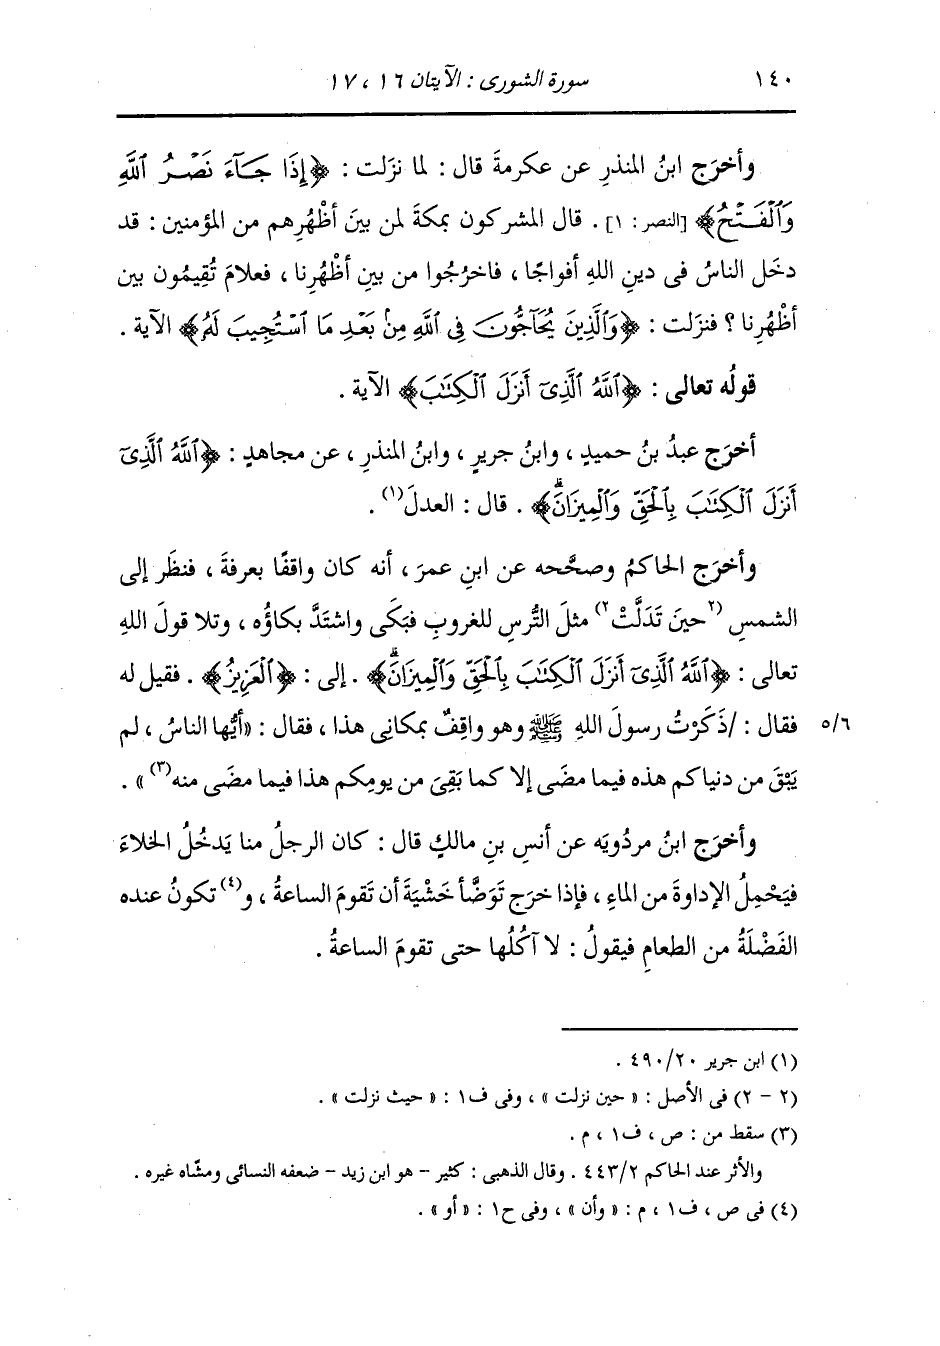 ١٤٠ سورة الشورى : الآيتان ١٦ ، ١٧
وأخرَج ابنُ المنذرِ عن عكرمةَ قال : لما نزَلت : ﴿إِذَا جَآءَ نَصْرُ ٱللَّهِ
وَٱلْفَتْحُ﴾ [النصر : ١] . قال المشركون بمكةَ لمن بينَ أظْهُرِهم من المؤمنين : قد
دخَل الناسُ فى دينِ اللهِ أفواجًا ، فاخرُجُوا من بينِ أظْهُرِنا ، فعلامَ تُقِيمُون بين
أظْهُرِنا ؟ فنزَلت : ﴿وَٱلَّذِينَ يُحَآجُّونَ فِى ٱللَّهِ مِنۢ بَعْدِ مَا ٱسْتُجِيبَ لَهُۥ﴾ الآية .
قولُه تعالى : ﴿ٱللَّهُ ٱلَّذِىٓ أَنزَلَ ٱلْكِتَٰبَ﴾ الآية .
أخرَج عبدُ بنُ حميدٍ ، وابنُ جريرٍ ، وابنُ المنذرِ ، عن مجاهدٍ : ﴿ٱللَّهُ ٱلَّذِىٓ
أَنزَلَ ٱلْكِتَٰبَ بِٱلْحَقِّ وَٱلْمِيزَانَۗ﴾ . قال : العدلَ(١) .
وأخرَج الحاكمُ وصحَّحه عن ابنِ عمرَ ، أنه كان واقفًا بعرفةَ ، فنظَر إلى
الشمسِ (٢حينَ تَدَلَّتْ٢) مثلَ التُّرسِ للغروبِ فبَكَى واشتَدَّ بكاؤُه ، وتلا قولَ اللهِ
تعالى : ﴿ٱللَّهُ ٱلَّذِىٓ أَنزَلَ ٱلْكِتَٰبَ بِٱلْحَقِّ وَٱلْمِيزَانَۗ﴾ . إلى : ﴿ٱلْعَزِيزُ﴾ . فقيل له
٥/٦ فقال : /ذَكَرْتُ رسولَ اللهِ ﷺ وهو واقِفٌ بمكانِى هذا ، فقال : «أيُّها الناسُ ، لم
يَبْقَ من دنياكم هذه فيما مضَى إلا كما بَقِىَ من يومِكم هذا فيما مضَى منه(٣)» .
وأخرَج ابنُ مردُويَه عن أنسِ بنِ مالكٍ قال : كان الرجلُ منا يَدخُلُ الخلاءَ
فيَحْمِلُ الإداوةَ من الماءِ ، فإذا خرَج تَوَضَّأ خَشْيَةَ أن تَقومَ الساعةُ ، و(٤) تكونُ عنده
الفَضْلَةُ من الطعامِ فيقولُ : لا آكُلُها حتى تقومَ الساعةُ .
(١) ابن جرير ٢٠/٤٩٠ .
(٢ - ٢) فى الأصل : « حين نزلت » ، وفى ف١ : « حيث نزلت » .
(٣) سقط من : ص ، ف١ ، م .
والأثر عند الحاكم ٢/٤٤٣ . وقال الذهبى : كثير - هو ابن زيد - ضعفه النسائى ومشّاه غيره .
(٤) فى ص ، ف١ ، م : « وأن » ، وفى ح١ : « أو » .